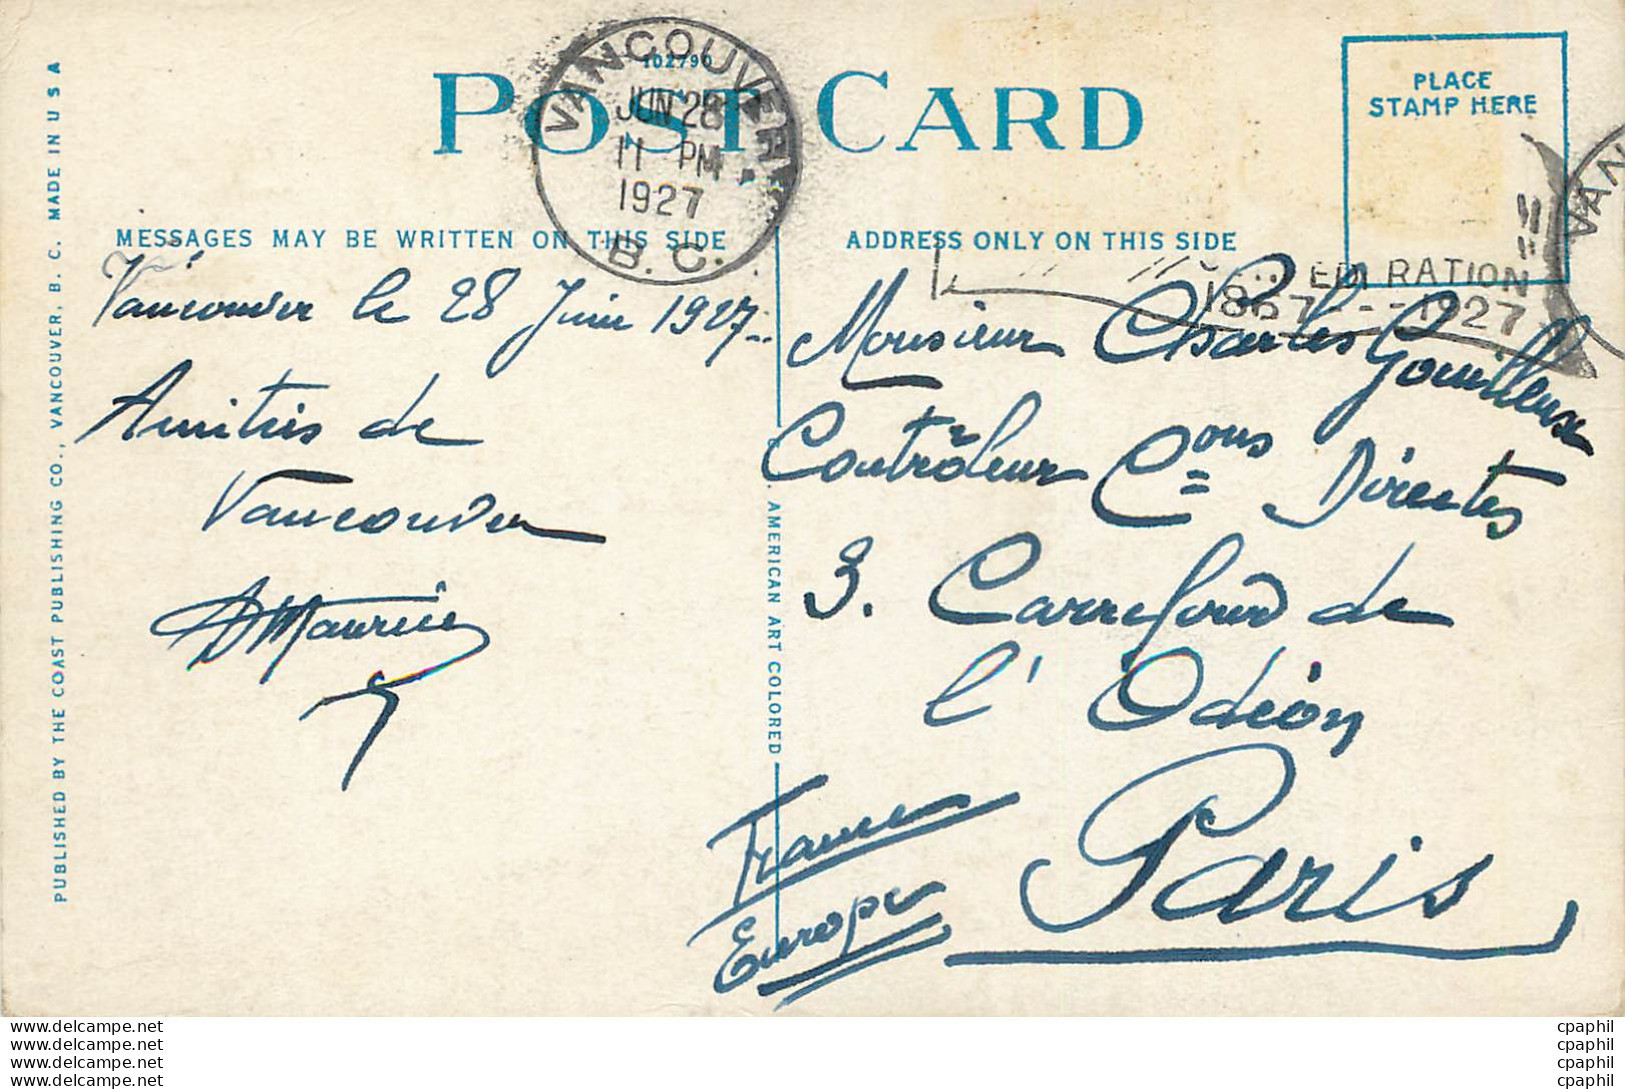 102790
POST CARD
PLACE
STAMP HERE
VANCOUVER
JUN 28
11 PM
1927
B.C.
VAN
1867---1927
MESSAGES MAY BE WRITTEN ON THIS SIDE
ADDRESS ONLY ON THIS SIDE
Vancouver le 28 Juin 1927..
Amitiés de
Vancouver
Maurice
Monsieur Charles Gouilleux
Contrôleur Cons Directes
3. Carrefour de
l'Odéon
Paris
France
Europe
AMERICAN ART COLORED
PUBLISHED BY THE COAST PUBLISHING CO., VANCOUVER, B. C. MADE IN U S A
www.delcampe.net
www.delcampe.net
www.delcampe.net
www.delcampe.net
cpaphil
cpaphil
cpaphil
cpaphil